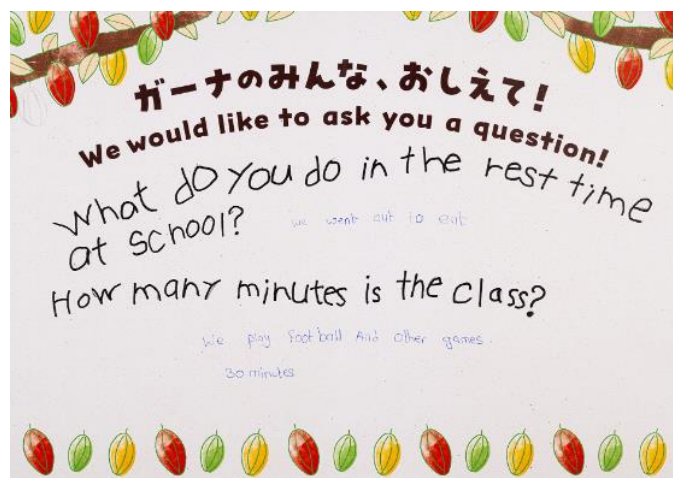 ガーナのみんな、おしえて!
We would like to ask you a question!
What do you do in the rest time
at school?
we went out to eat
How many minutes is the class?
We play foot ball And other games.
30 minutes